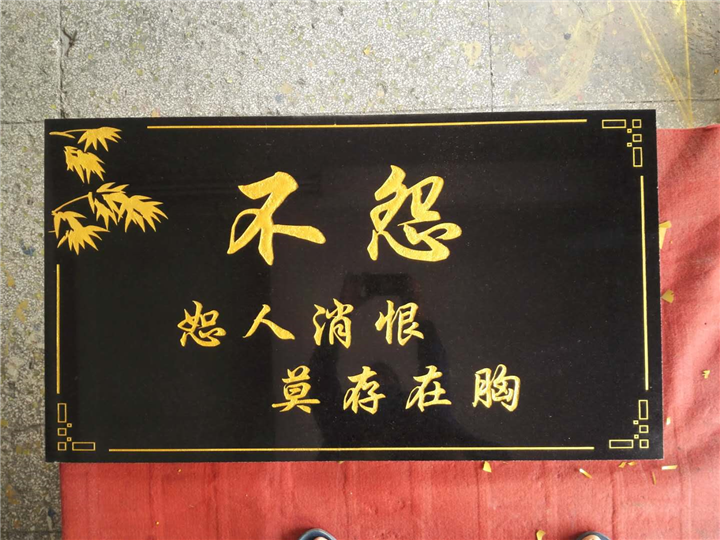 不怨
恕人消恨
莫存在胸